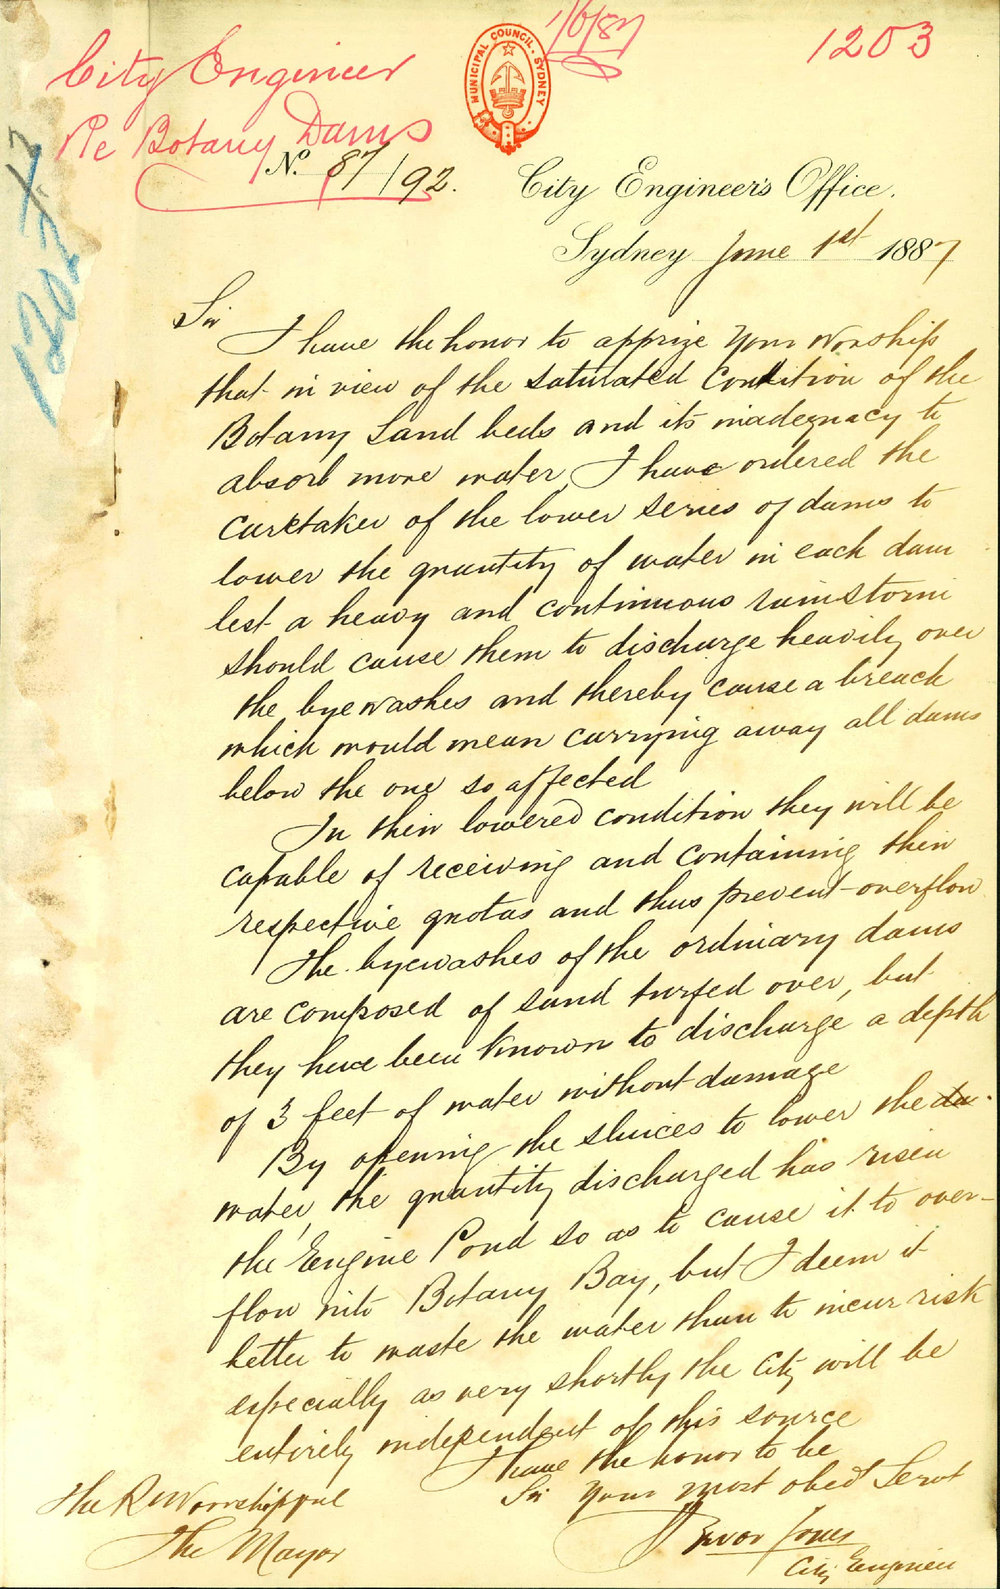 1/6/87
1203
City Engineer
Re Botany Dams
MUNICIPAL COUNCIL · SYDNEY
No. 87/92.
City Engineer's Office.
Sydney June 1st 1887
1203
Sir
I have the honor to apprize Your Worship
that in view of the saturated condition of the
Botany Sand beds and its inadequacy to
absorb more water, I have ordered the
caretaker of the lower series of dams to
lower the quantity of water in each dam
lest a heavy and continuous rainstorm
should cause them to discharge heavily over
the byewashes and thereby cause a breach
which would mean carrying away all dams
below the one so affected
In their lowered condition they will be
capable of receiving and containing their
respective quotas and thus prevent overflow
The byewashes of the ordinary dams
are composed of sand turfed over, but
they have been known to discharge a depth
of 3 feet of water without damage
By opening the sluices to lower the
water, the quantity discharged has risen
the Engine Pond so as to cause it to over-
flow into Botany Bay, but I deem it
better to waste the water than to incur risk
especially as very shortly the City will be
entirely independent of this source
I have the honor to be
Sir Your most obedt Servt
Trevor Jones
City Engineer
The Rt Worshipful
The Mayor